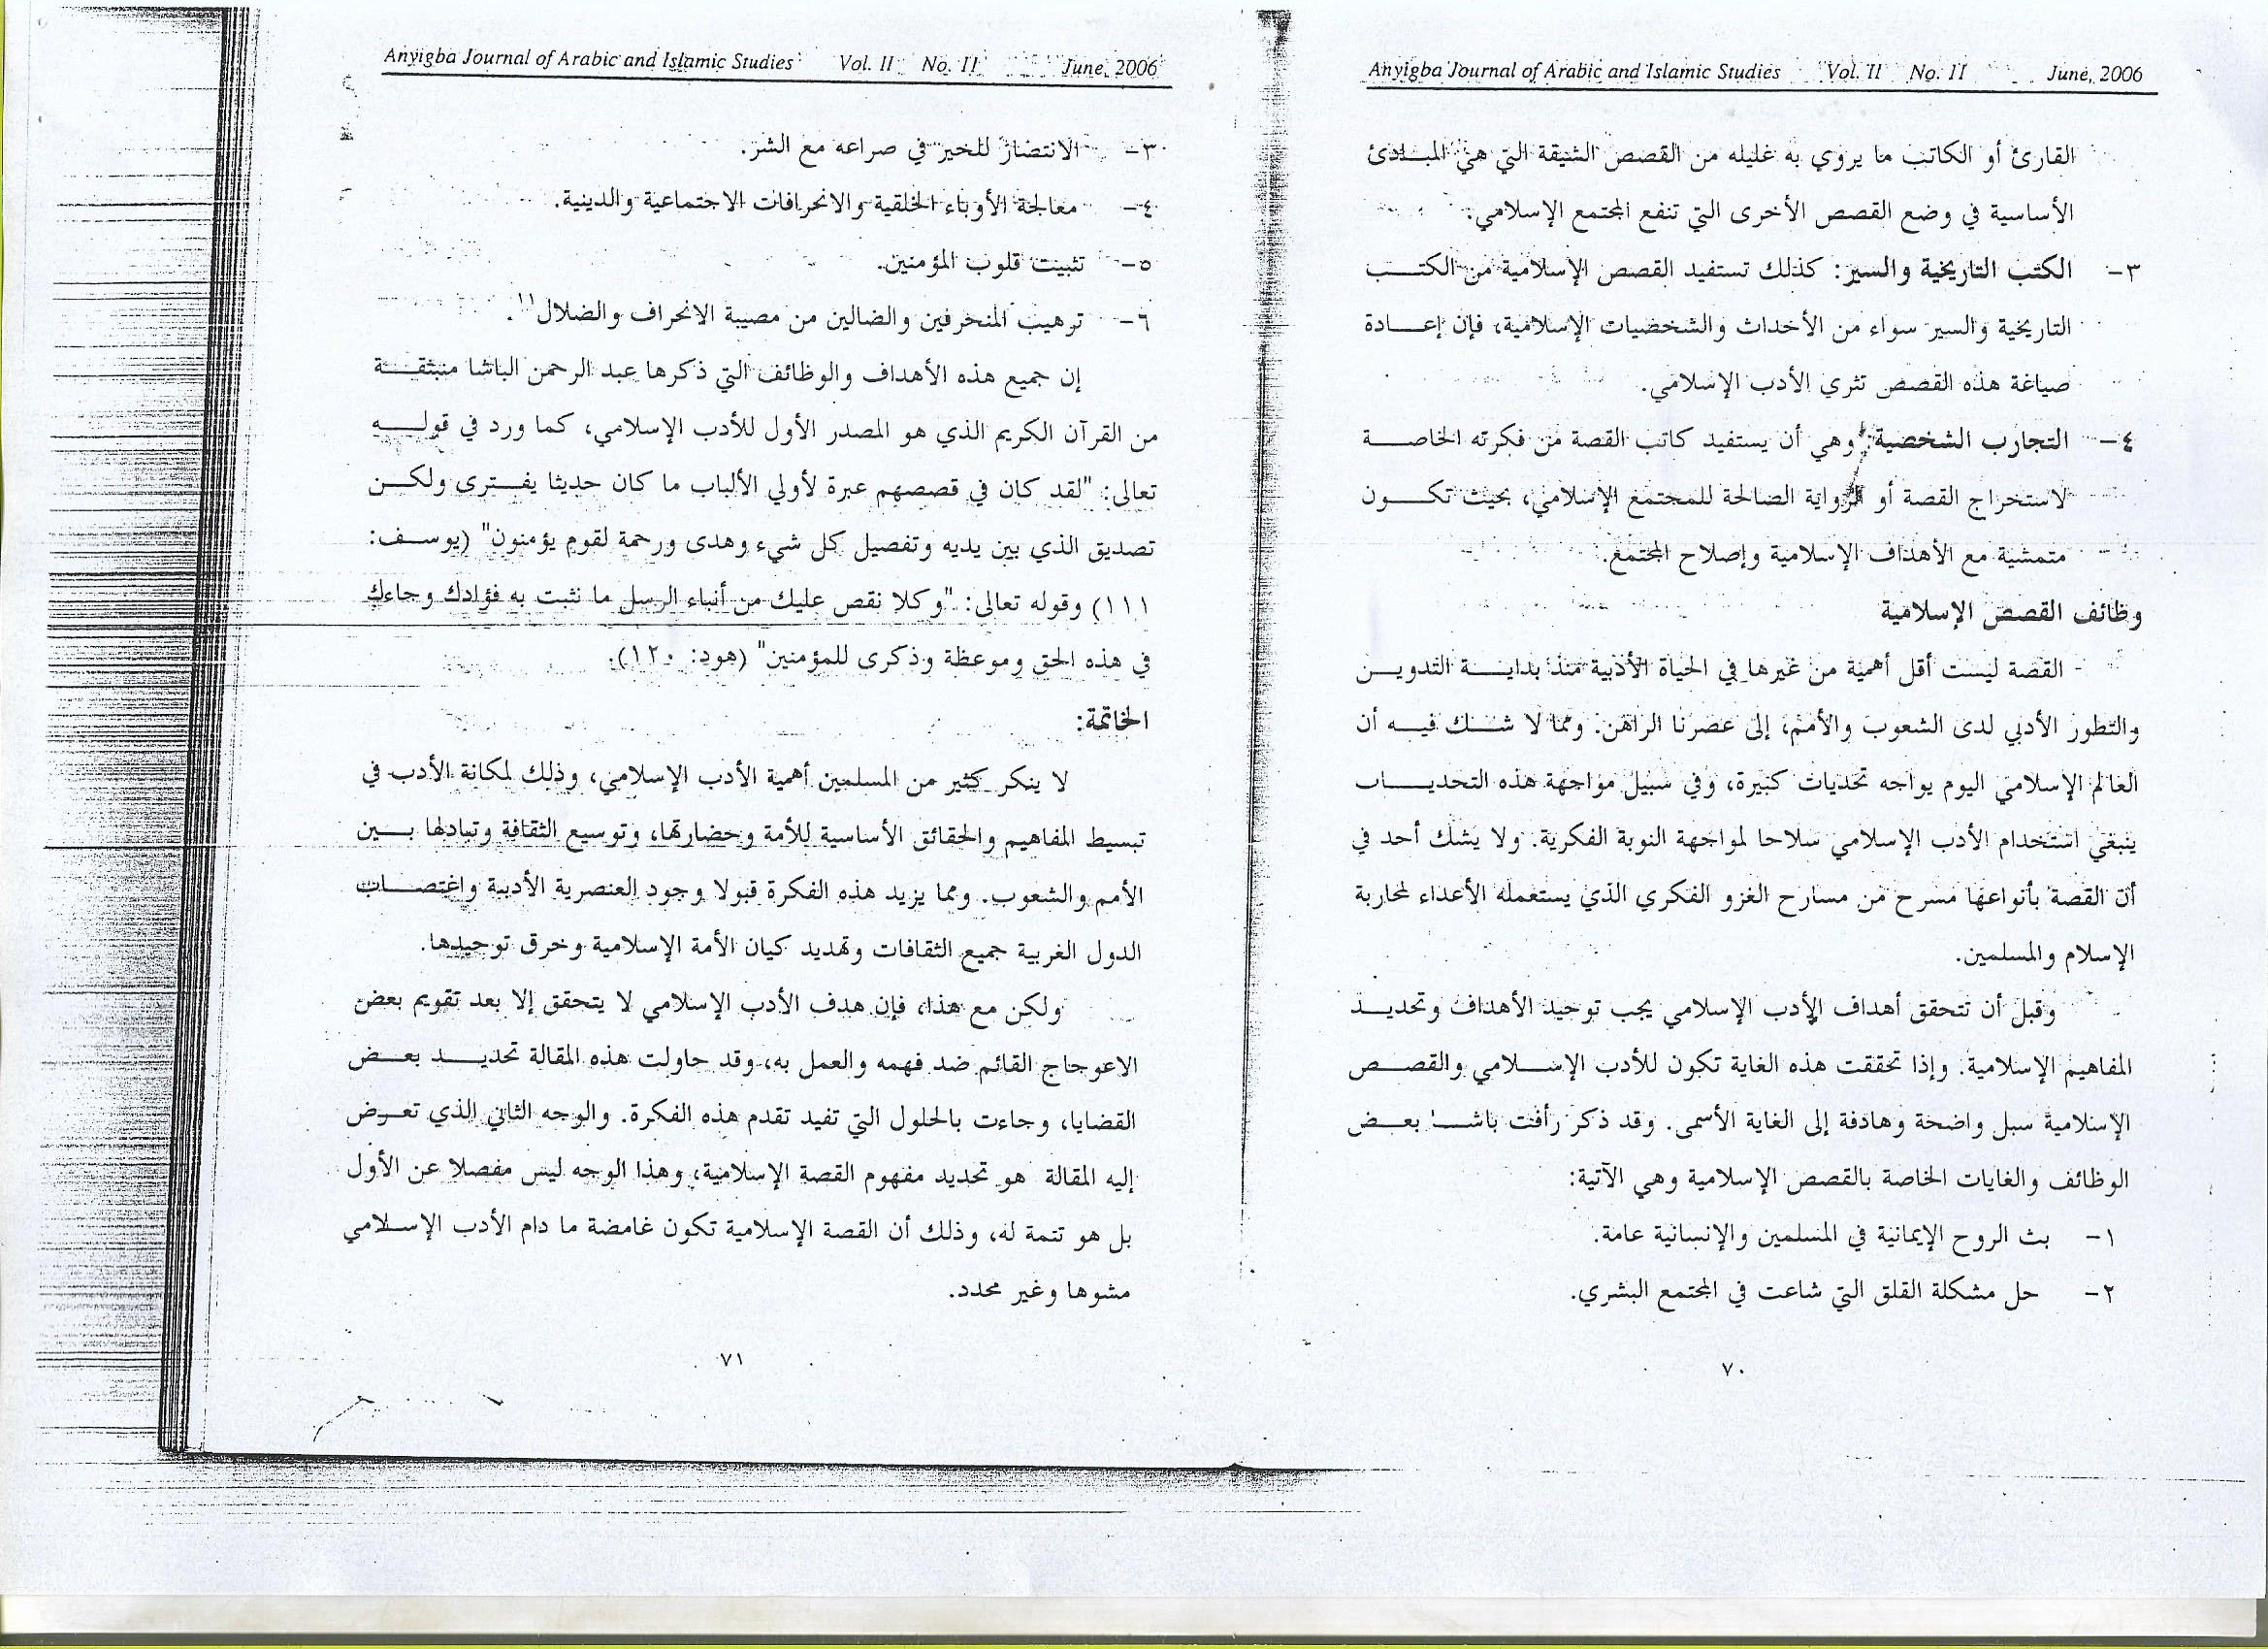 Anyigba Journal of Arabic and Islamic Studies Vol. II No. II June, 2006
القارئ أو الكاتب ما يروي به غليله من القصص الشيقة التي هي المبادئ
الأساسية في وضع القصص الأخرى التي تنفع المجتمع الإسلامي.
٣- الكتب التاريخية والسير: كذلك تستفيد القصص الإسلامية من الكتب
التاريخية والسير سواء من الأحداث والشخصيات الإسلامية، فإن إعادة
صياغة هذه القصص تثري الأدب الإسلامي.
٤- التجارب الشخصية: وهي أن يستفيد كاتب القصة من فكرته الخاصة
لاستخراج القصة أو الرواية الصالحة للمجتمع الإسلامي، بحيث تكون
متمشية مع الأهداف الإسلامية وإصلاح المجتمع.
وظائف القصص الإسلامية
القصة ليست أقل أهمية من غيرها في الحياة الأدبية منذ بداية التدوين
والتطور الأدبي لدى الشعوب والأمم، إلى عصرنا الراهن. ومما لا شك فيه أن
العالم الإسلامي اليوم يواجه تحديات كبيرة، وفي سبيل مواجهة هذه التحديات
ينبغي استخدام الأدب الإسلامي سلاحا لمواجهة النوبة الفكرية. ولا يشك أحد في
أن القصة بأنواعها مسرح من مسارح الغزو الفكري الذي يستعمله الأعداء لمحاربة
الإسلام والمسلمين.
وقبل أن تتحقق أهداف الأدب الإسلامي يجب توحيد الأهداف وتحديد
المفاهيم الإسلامية. وإذا تحققت هذه الغاية تكون للأدب الإسلامي والقصص
الإسلامية سبل واضحة وهادفة إلى الغاية الأسمى. وقد ذكر رأفت باشا بعض
الوظائف والغايات الخاصة بالقصص الإسلامية وهي الآتية:
١- بث الروح الإيمانية في المسلمين والإنسانية عامة.
٢- حل مشكلة القلق التي شاعت في المجتمع البشري.
٧٠
Anyigba Journal of Arabic and Islamic Studies Vol. II No. II June, 2006
٣- الانتصار للخير في صراعه مع الشر.
٤- معالجة الأوباء الخلقية والانحرافات الاجتماعية والدينية.
٥- تثبيت قلوب المؤمنين.
٦- ترهيب المنحرفين والضالين من مصيبة الانحراف والضلال١١.
إن جميع هذه الأهداف والوظائف التي ذكرها عبد الرحمن الباشا منبثقة
من القرآن الكريم الذي هو المصدر الأول للأدب الإسلامي، كما ورد في قوله
تعالى: "لقد كان في قصصهم عبرة لأولي الألباب ما كان حديثا يفترى ولكن
تصديق الذي بين يديه وتفصيل كل شيء وهدى ورحمة لقوم يؤمنون" (يوسف:
١١١) وقوله تعالى: "وكلا نقص عليك من أنباء الرسل ما نثبت به فؤادك وجاءك
في هذه الحق وموعظة وذكرى للمؤمنين" (هود: ١٢٠).
الخاتمة:
لا ينكر كثير من المسلمين أهمية الأدب الإسلامي، وذلك لمكانة الأدب في
تبسيط المفاهيم والحقائق الأساسية للأمة وحضارتها، وتوسيع الثقافة وتبادلها بين
الأمم والشعوب. ومما يزيد هذه الفكرة قبولا وجود العنصرية الأدبية واغتصاب
الدول الغربية جميع الثقافات وتهديد كيان الأمة الإسلامية وخرق توحيدها.
ولكن مع هذا، فإن هدف الأدب الإسلامي لا يتحقق إلا بعد تقويم بعض
الاعوجاج القائم ضد فهمه والعمل به، وقد حاولت هذه المقالة تحديد بعض
القضايا، وجاءت بالحلول التي تفيد تقدم هذه الفكرة. والوجه الثاني الذي تعرض
إليه المقالة هو تحديد مفهوم القصة الإسلامية، وهذا الوجه ليس مفصلا عن الأول
بل هو تتمة له، وذلك أن القصة الإسلامية تكون غامضة ما دام الأدب الإسلامي
مشوها وغير محدد.
٧١